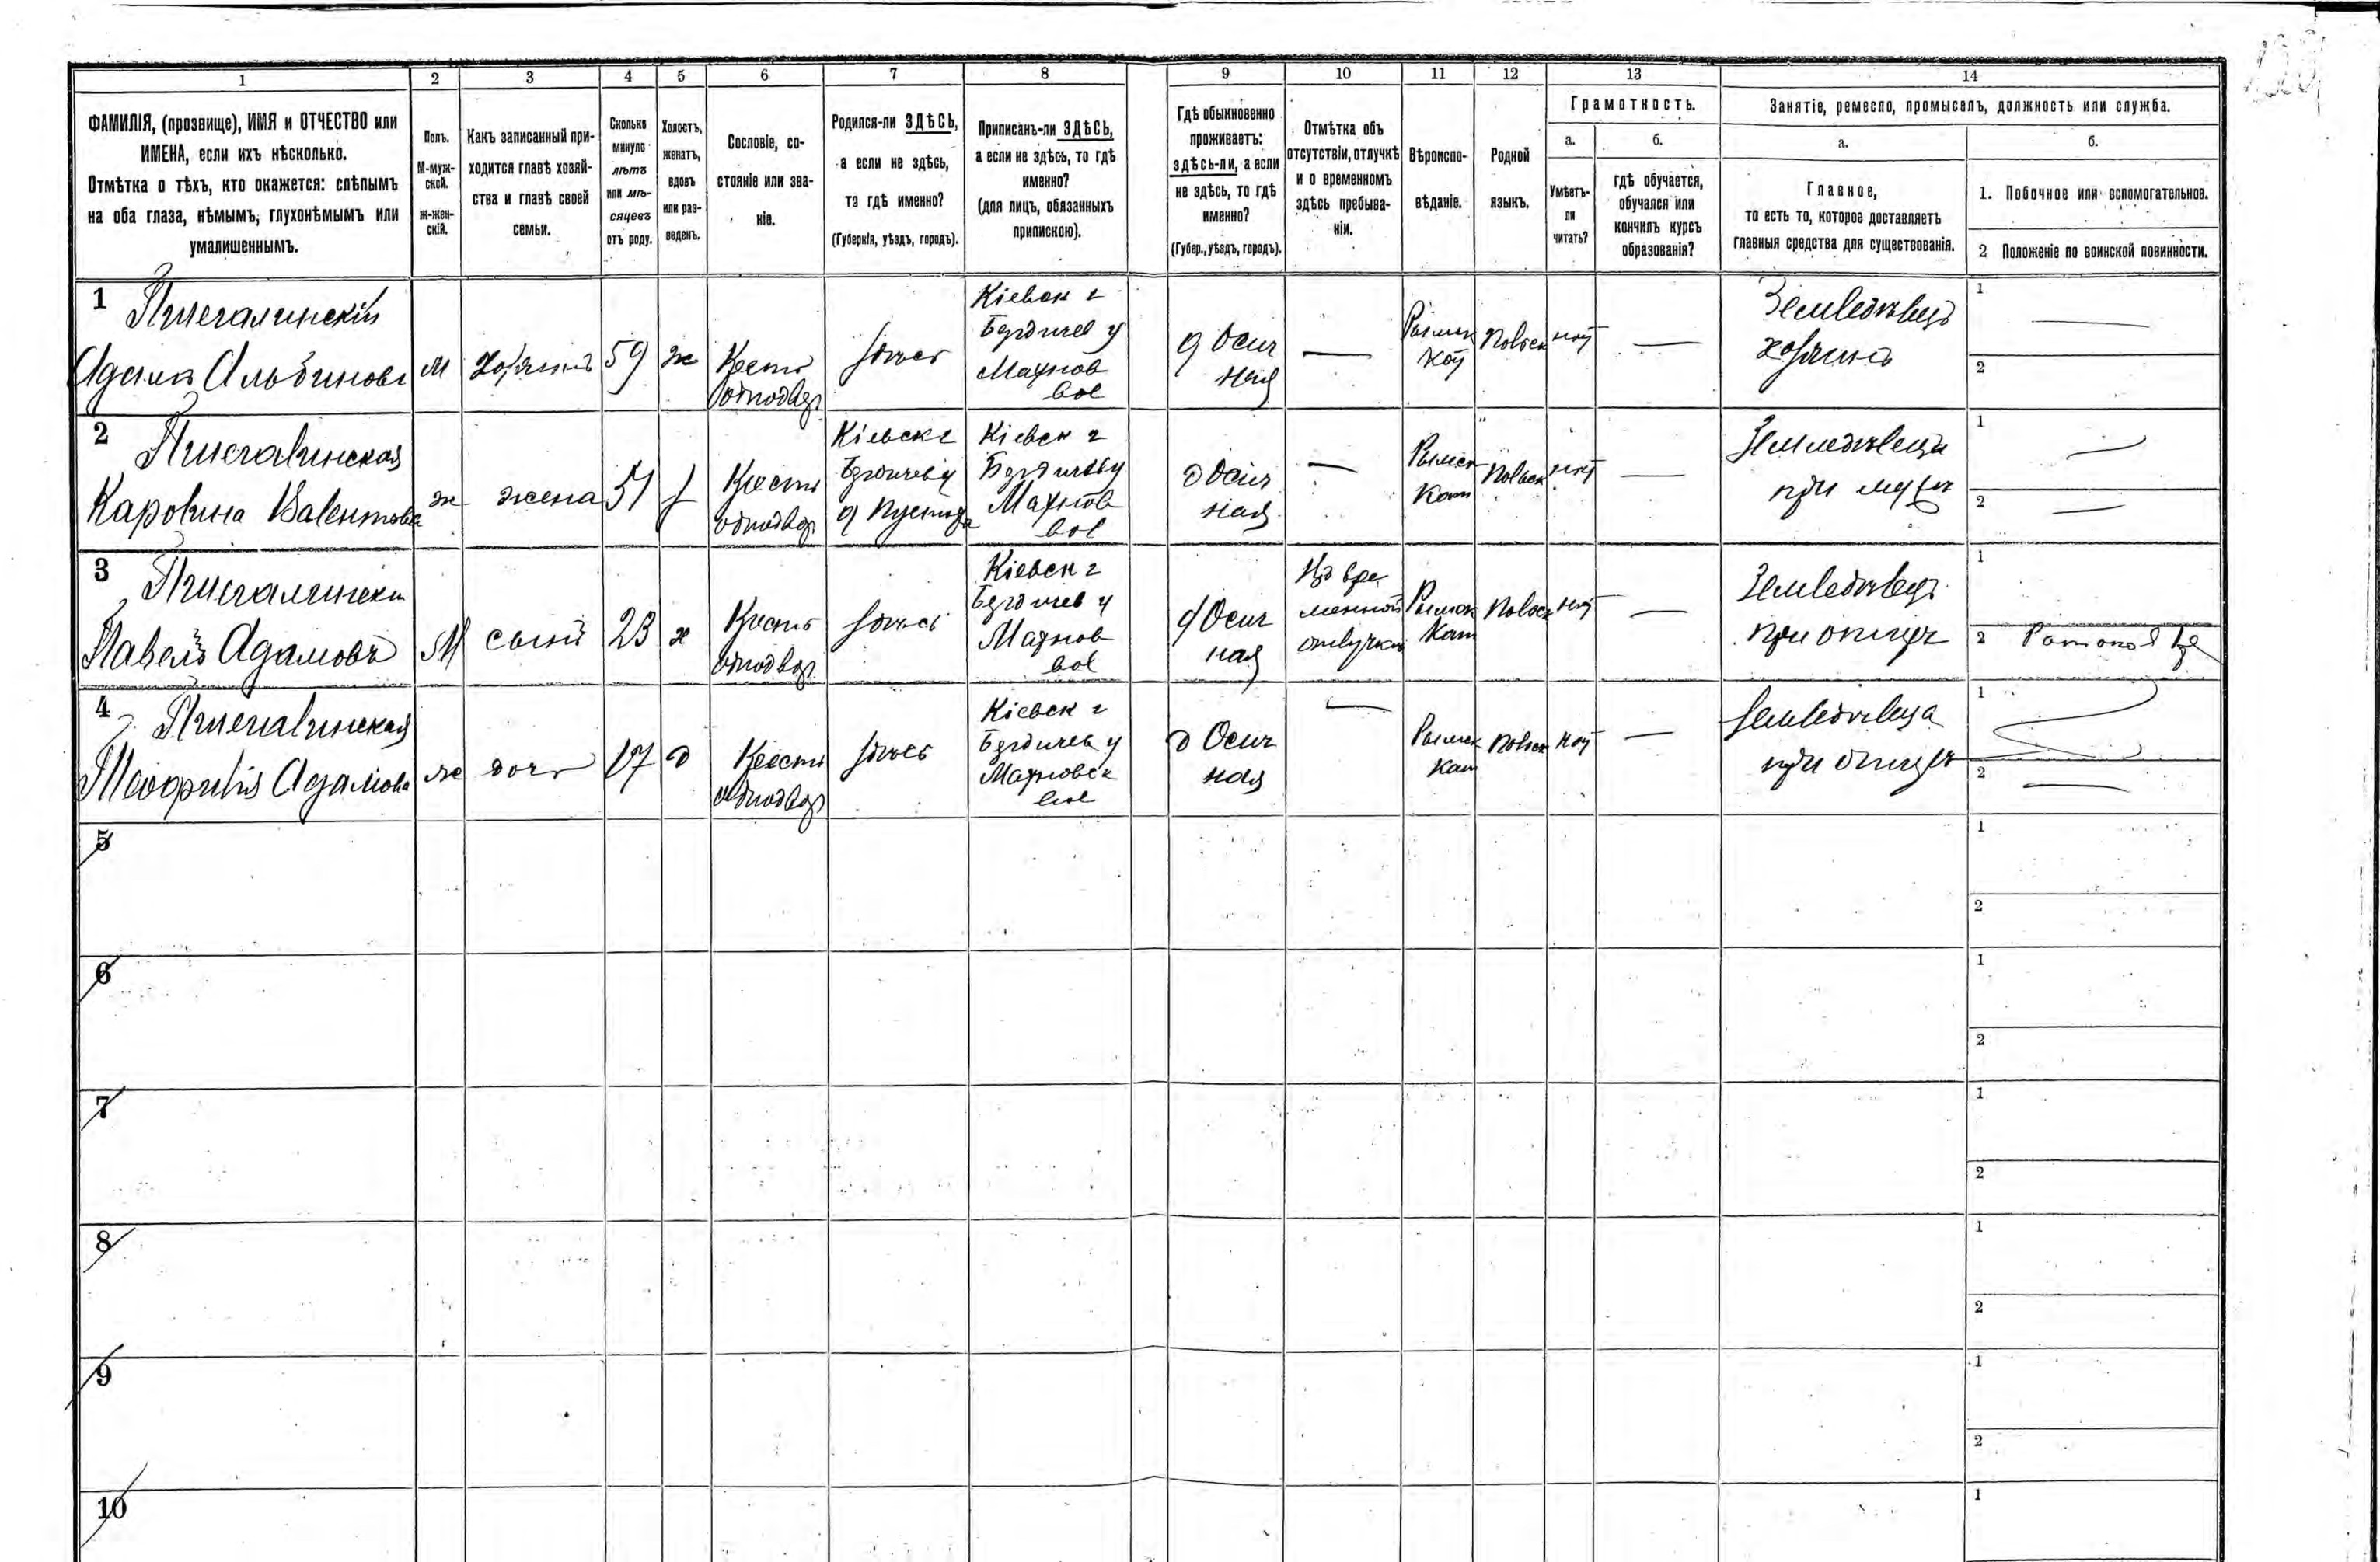 1 2 3 4 5 6 7 8 9 10 11 12 13 14
ФАМИЛІЯ, (прозвище), ИМЯ и ОТЧЕСТВО или
ИМЕНА, если ихъ нѣсколько.
Отмѣтка о тѣхъ, кто окажется: слѣпымъ
на оба глаза, нѣмымъ, глухонѣмымъ или
умалишеннымъ.
Полъ.
М-муж-
ской.
ж-жен-
скій.
Какъ записанный при-
ходится главѣ хозяй-
ства и главѣ своей
семьи.
Сколько
минуло
лѣтъ
или мѣ-
сяцевъ
отъ роду.
Холостъ,
женатъ,
вдовъ
или раз-
веденъ.
Сословіе, со-
стояніе или зва-
ніе.
Родился-ли ЗДѢСЬ,
а если не здѣсь,
то гдѣ именно?
(Губернія, уѣздъ, городъ).
Приписанъ-ли ЗДѢСЬ,
а если не здѣсь, то гдѣ
именно?
(для лицъ, обязанныхъ
припискою).
Гдѣ обыкновенно
проживаетъ:
здѣсь-ли, а если
не здѣсь, то гдѣ
именно?
(Губер., уѣздъ, городъ).
Отмѣтка объ
отсутствіи, отлучкѣ
и о временномъ
здѣсь пребыва-
ніи.
Вѣроиспо-
вѣданіе.
Родной
языкъ.
Грамотность.
а.
Умѣетъ-
ли
читать?
б.
гдѣ обучается,
обучался или
кончилъ курсъ
образованія?
Занятіе, ремесло, промыселъ, должность или служба.
а.
Главное,
то есть то, которое доставляетъ
главныя средства для существованія.
б.
1. Побочное или вспомогательное.
2 Положеніе по воинской повинности.
1
Адамъ Альбиновъ
м
хозяинъ
59
ж
Крест
однодвор
здѣсь
Кіевск г
Бердичев у
Махнов
вол
д Осич
ная
—
Римск
Польск
нѣт
—
Земледѣлецъ
хозяинъ
1
2
2
Каролина
ж
жена
51
Крест
однодвор
Кіевск г
Бердичев у
Кіевск г
Бердичев у
Махнов
вол
д Осич
ная
—
Римск
Кат
Польск
нѣт
—
при мужѣ
1
2
3
Павелъ Адамовъ
М
сынъ
23
х
Крест
однодвор
здѣсь
Кіевск г
Бердичев у
Махнов
вол
д Осич
ная
Въ вре
менной
отлучкѣ
Римск
Кат
Польск
нѣт
—
Земледѣлецъ
при отцѣ
1
2
4
Адамова
ж
дочь
17
д
Крест
однодвор
здѣсь
Кіевск г
Бердичев у
Махновск
вол
д Осич
ная
—
Римск
Кат
Польск
нѣт
—
при отцѣ
1
2
5
1
2
6
1
2
7
1
2
8
1
2
9
1
2
10
1